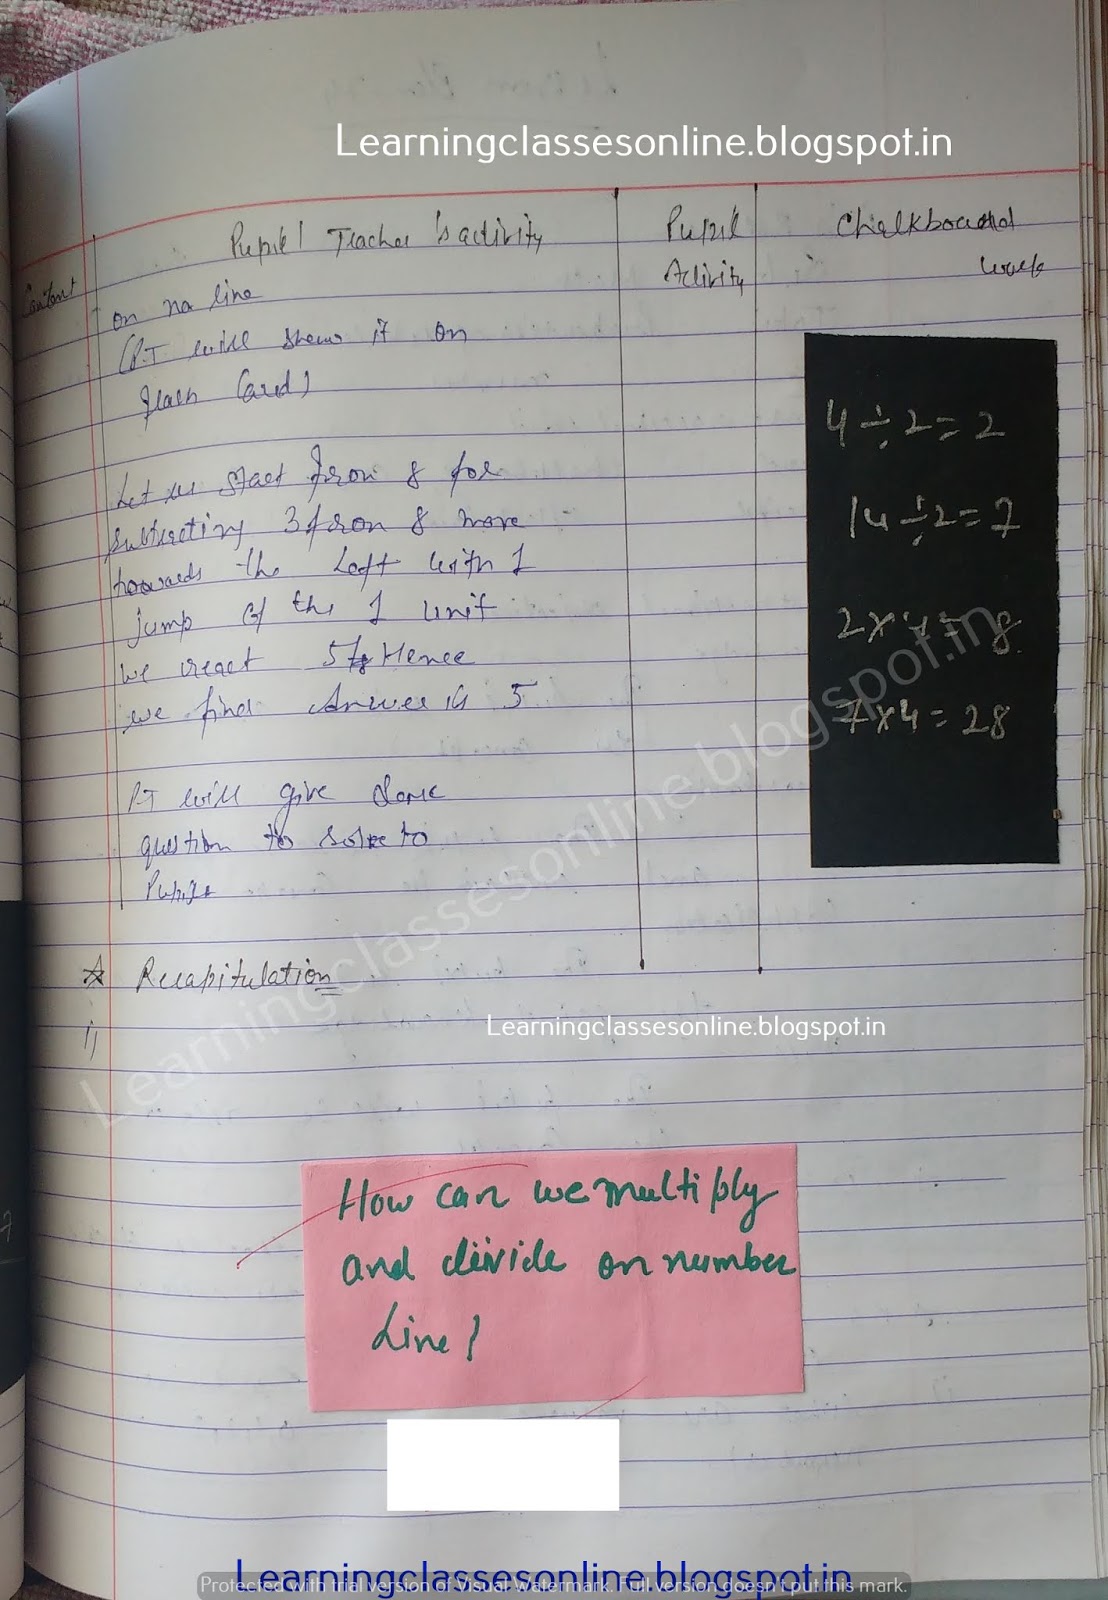 Learningclassesonline.blogspot.in
Content
Pupil Teacher's activity
Pupil
Activity
Chalkboard
work
on no line
(P.T will show it on
flash Card)
Let us start from 8 for
subtracting 3 from 8 move
towards the Left with 1
jump of the 1 unit
we react 5 Hence
we find Answer is 5
P.T will give some
question to solve to
Pupils
4÷2=2
14÷2=7
2x4=8
7x4=28
☆ Recapitulation
i)
Learningclassesonline.blogspot.in
Learningclassesonline.blogspot.in
How can we multiply
and divide on number
Line
Learningclassesonline.blogspot.in
Protected with trial version of Visual Watermark. Full version doesn't put this mark.